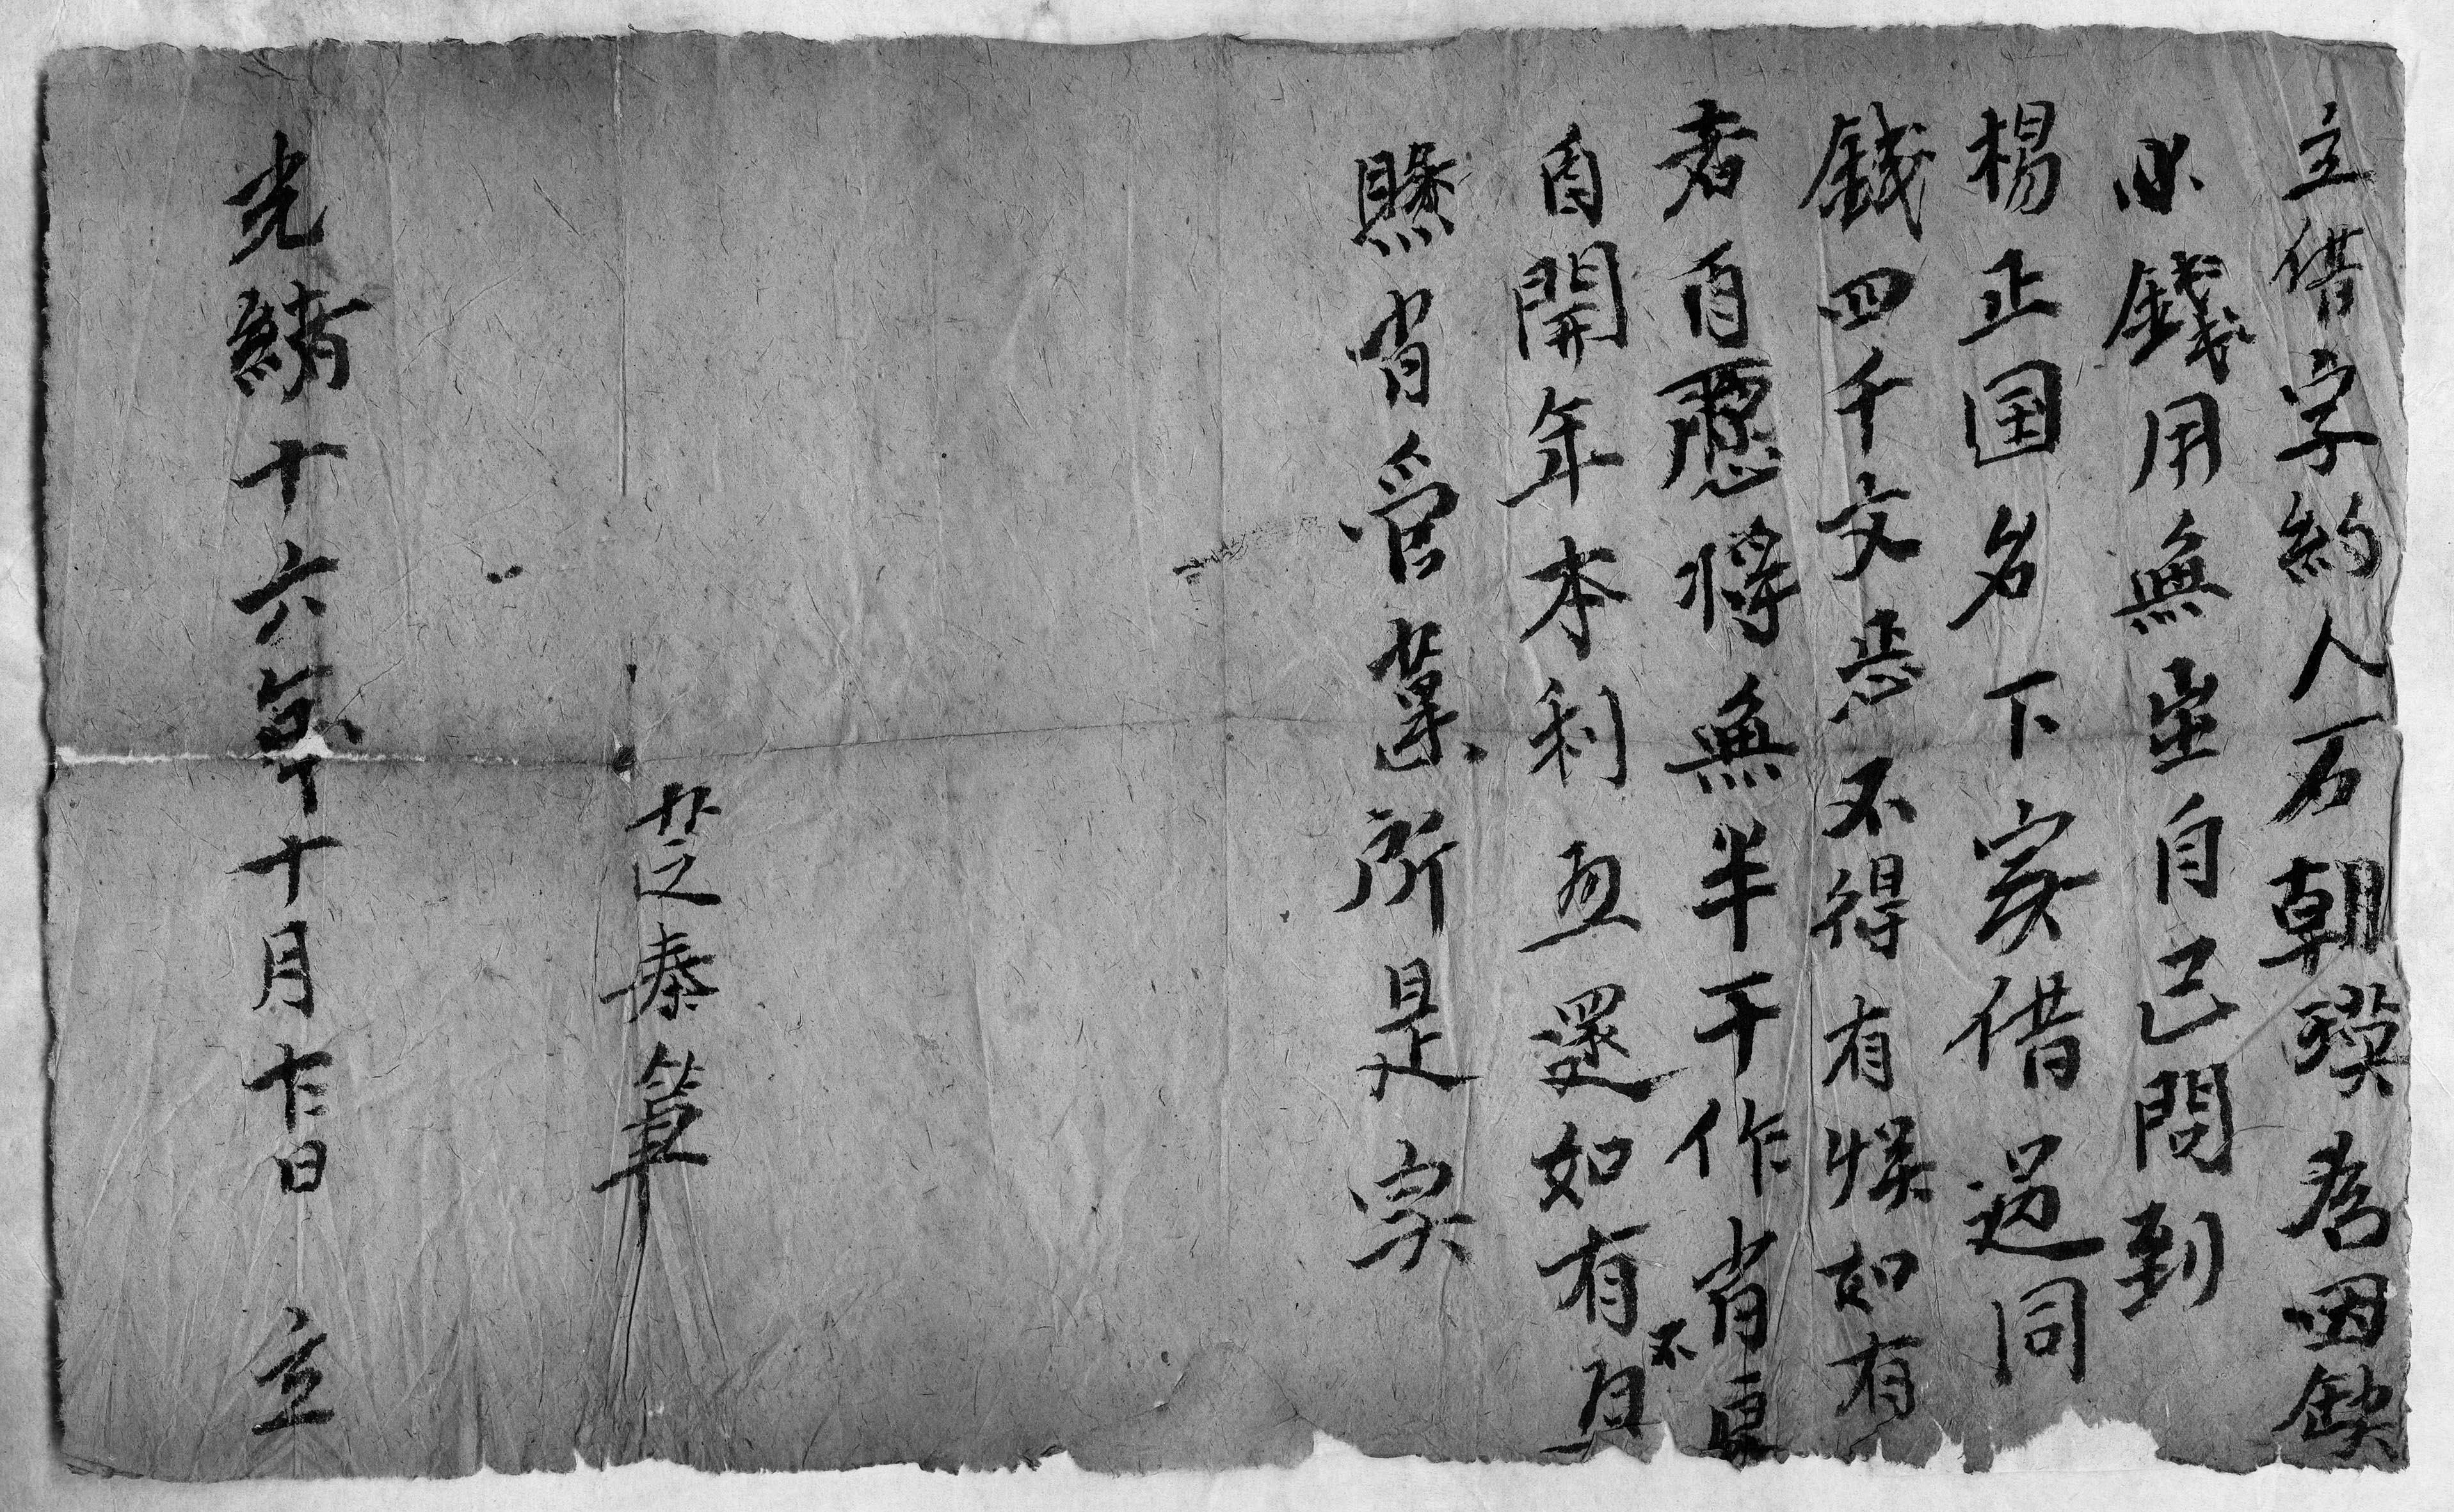 立借字約人石朝瑛為因缺
少錢用無出自己問到
楊正国名下实借過同
錢四千文恐不得有悮如有
者自愿将無半干作肖
自開年本利血還如有不
賬肖管業所是实
芝泰筆
光緒十六年十月廿日 立